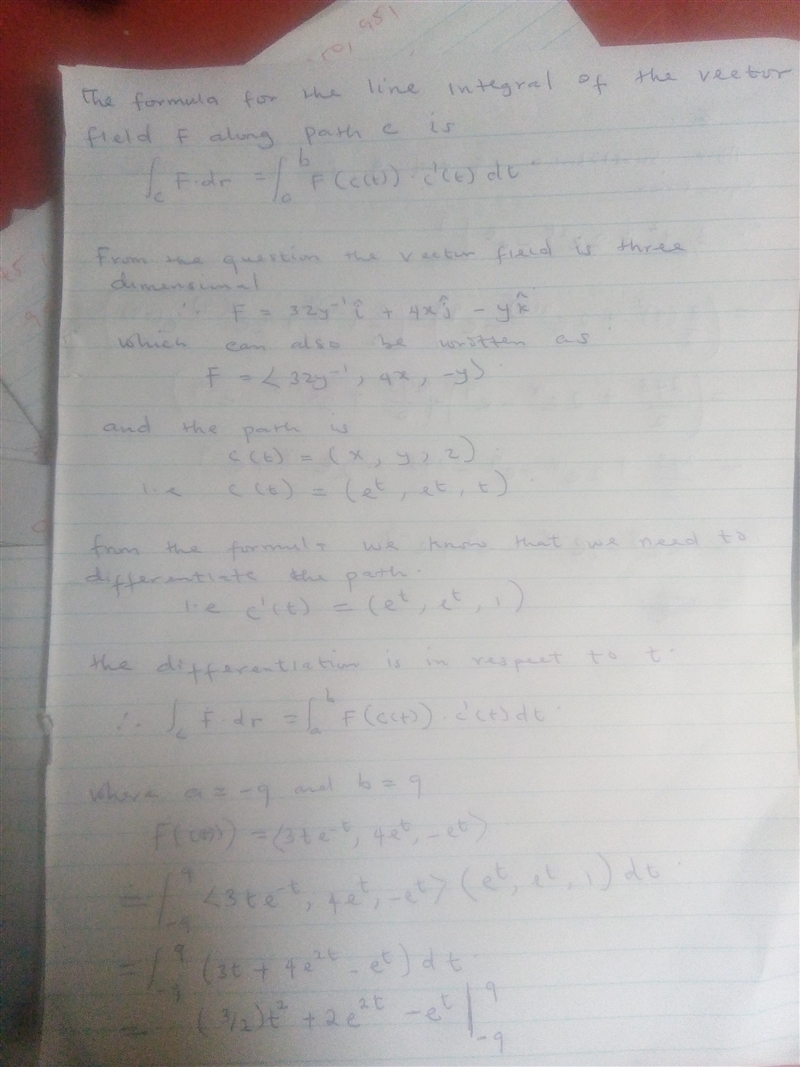 951
501
The formula for the line integral of the vector
field F along path c is
∫_c F·dr = ∫_a^b F(c(t))·c'(t) dt.
From the question the vector field is three
dimensional
∴ F = 3zy⁻¹ î + 4xĵ - yk̂
which can also be written as
F = <3zy⁻¹, 4x, -y>
and the path is
c(t) = (x, y, z)
i.e c(t) = (eᵗ, eᵗ, t)
from the formula we know that we need to
differentiate the path.
i.e c'(t) = (eᵗ, eᵗ, 1)
the differentiation is in respect to t.
∴ ∫_c F·dr = ∫_a^b F(c(t))·c'(t)dt.
where a = -9 and b = 9
F(c(t)) = <3te⁻ᵗ, 4eᵗ, -eᵗ>
= ∫_-9^9 <3te⁻ᵗ, 4eᵗ, -eᵗ> (eᵗ, eᵗ, 1) dt.
= ∫_-9^9 (3t + 4e²ᵗ - eᵗ) dt.
= (3/2)t² + 2e²ᵗ - eᵗ |_-9^9